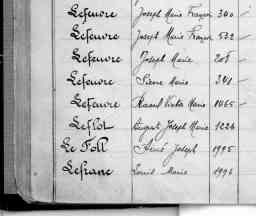 Lefeuvre Joseph Marie François 340
Lefeuvre Joseph Marie François 532
Lefeuvre Joseph Marie 208
Lefeuvre Pierre Marie 241
Lefeuvre Raoul Victor Marie 1465
Leflot August Joseph Marie 1224
Le Foll Aimé Joseph 1995
Lefranc Louis Marie 1996